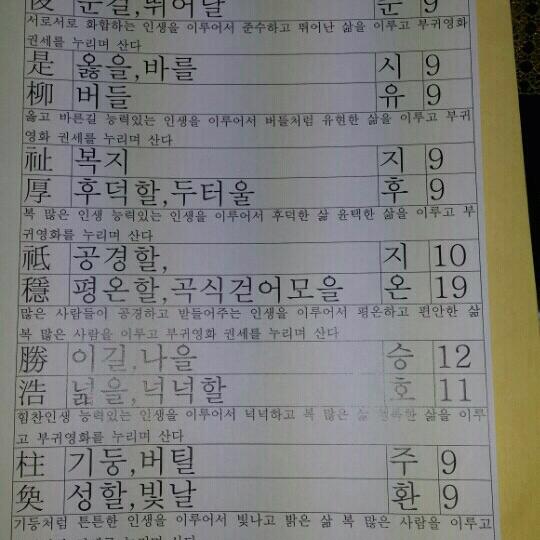 俊 준걸,뛰어날 준 9
서로서로 화합하는 인생을 이루어서 준수하고 뛰어난 삶을 이루고 부귀영화
권세를 누리며 산다
是 옳을,바를 시 9
柳 버들 유 9
옳고 바른길 능력있는 인생을 이루어서 버들처럼 유현한 삶을 이루고 부귀
영화 권세를 누리며 산다
祉 복지 지 9
厚 후덕할,두터울 후 9
복 많은 인생 능력있는 인생을 이루어서 후덕한 삶 윤택한 삶을 이루고 부
귀영화를 누리며 산다
祗 공경할, 지 10
穩 평온할,곡식걷어모을 온 19
많은 사람들이 공경하고 받들어주는 인생을 이루어서 평온하고 편안한 삶
복 많은 사람을 이루고 부귀영화 권세를 누리며 산다
勝 이길,나을 승 12
浩 넓을,넉넉할 호 11
힘찬인생 능력있는 인생을 이루어서 넉넉하고 복 많은 삶 삶을 이루
고 부귀영화를 누리며 산다
柱 기둥,버틸 주 9
奐 성할,빛날 환 9
기둥처럼 튼튼한 인생을 이루어서 빛나고 밝은 삶 복 많은 사람을 이루고